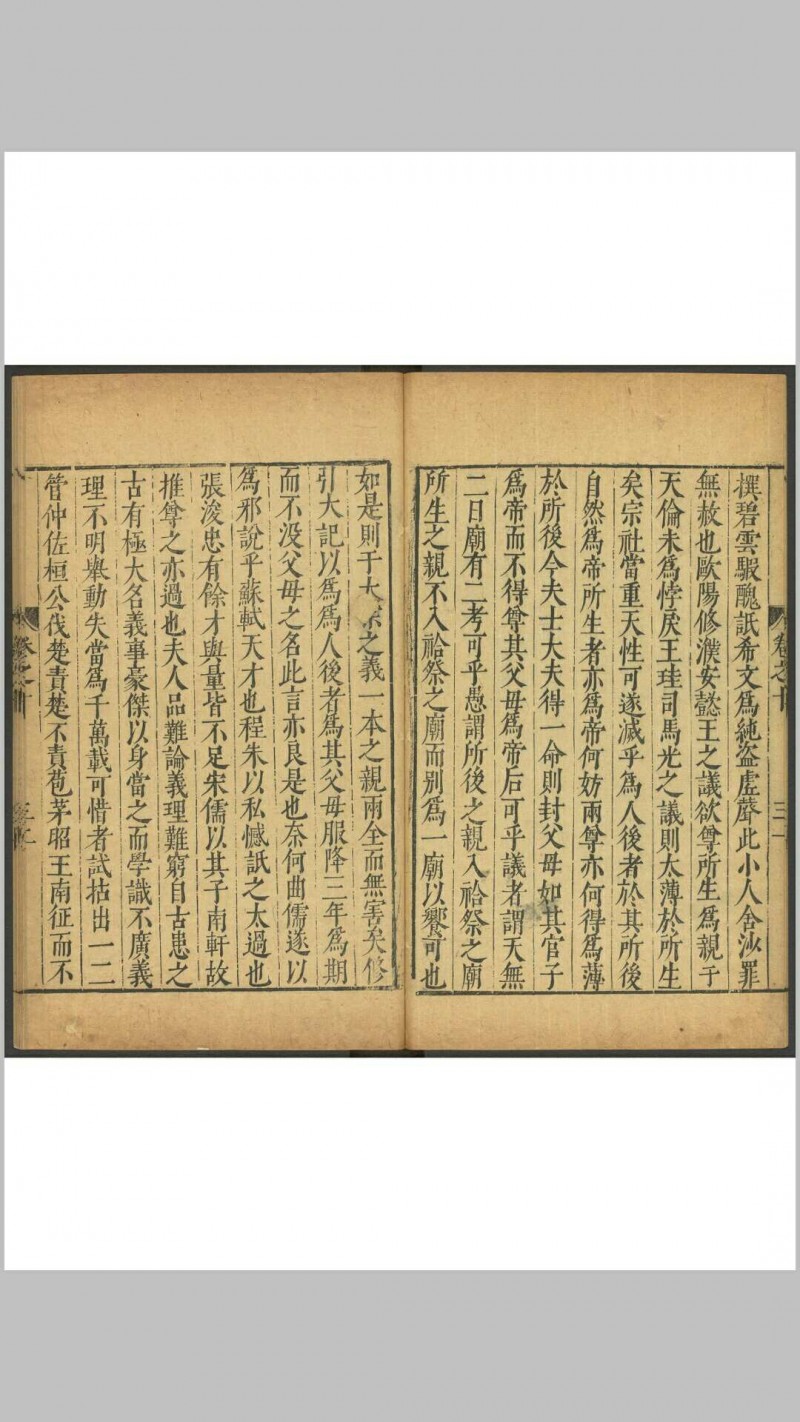 撰碧雲騢醜詆希文爲純盜虛聲此小人含沙罪
無赦也歐陽修濮安懿王之議欲尊所生爲親于
天倫未爲悖戾王珪司馬光之議則太薄於所生
矣宗社當重天性可遂滅乎爲人後者於其所後
自然爲帝所生者亦爲帝何妨兩尊亦何得爲薄
於所後今夫士大夫得一命則封父母如其官子
爲帝而不得尊其父母爲帝后可乎議者謂天無
二日廟有二考可乎愚謂所後之親入祫祭之廟
所生之親不入祫祭之廟而別爲一廟以饗可也
如是則于大宗之義一本之親兩全而無害矣修
引大記以爲爲人後者爲其父母服降三年爲期
而不没父母之名此言亦良是也奈何曲儒遂以
爲邪説乎蘇軾天才也程朱以私憾詆之太過也
張浚忠有餘才與量皆不足宋儒以其子南軒故
推尊之亦過也夫人品難論義理難窮自古患之
古有極大名義事豪傑以身當之而學識不廣義
理不明舉動失當爲千萬載可惜者試拈出一二
管仲佐桓公伐楚責楚不責苞茅昭王南征而不